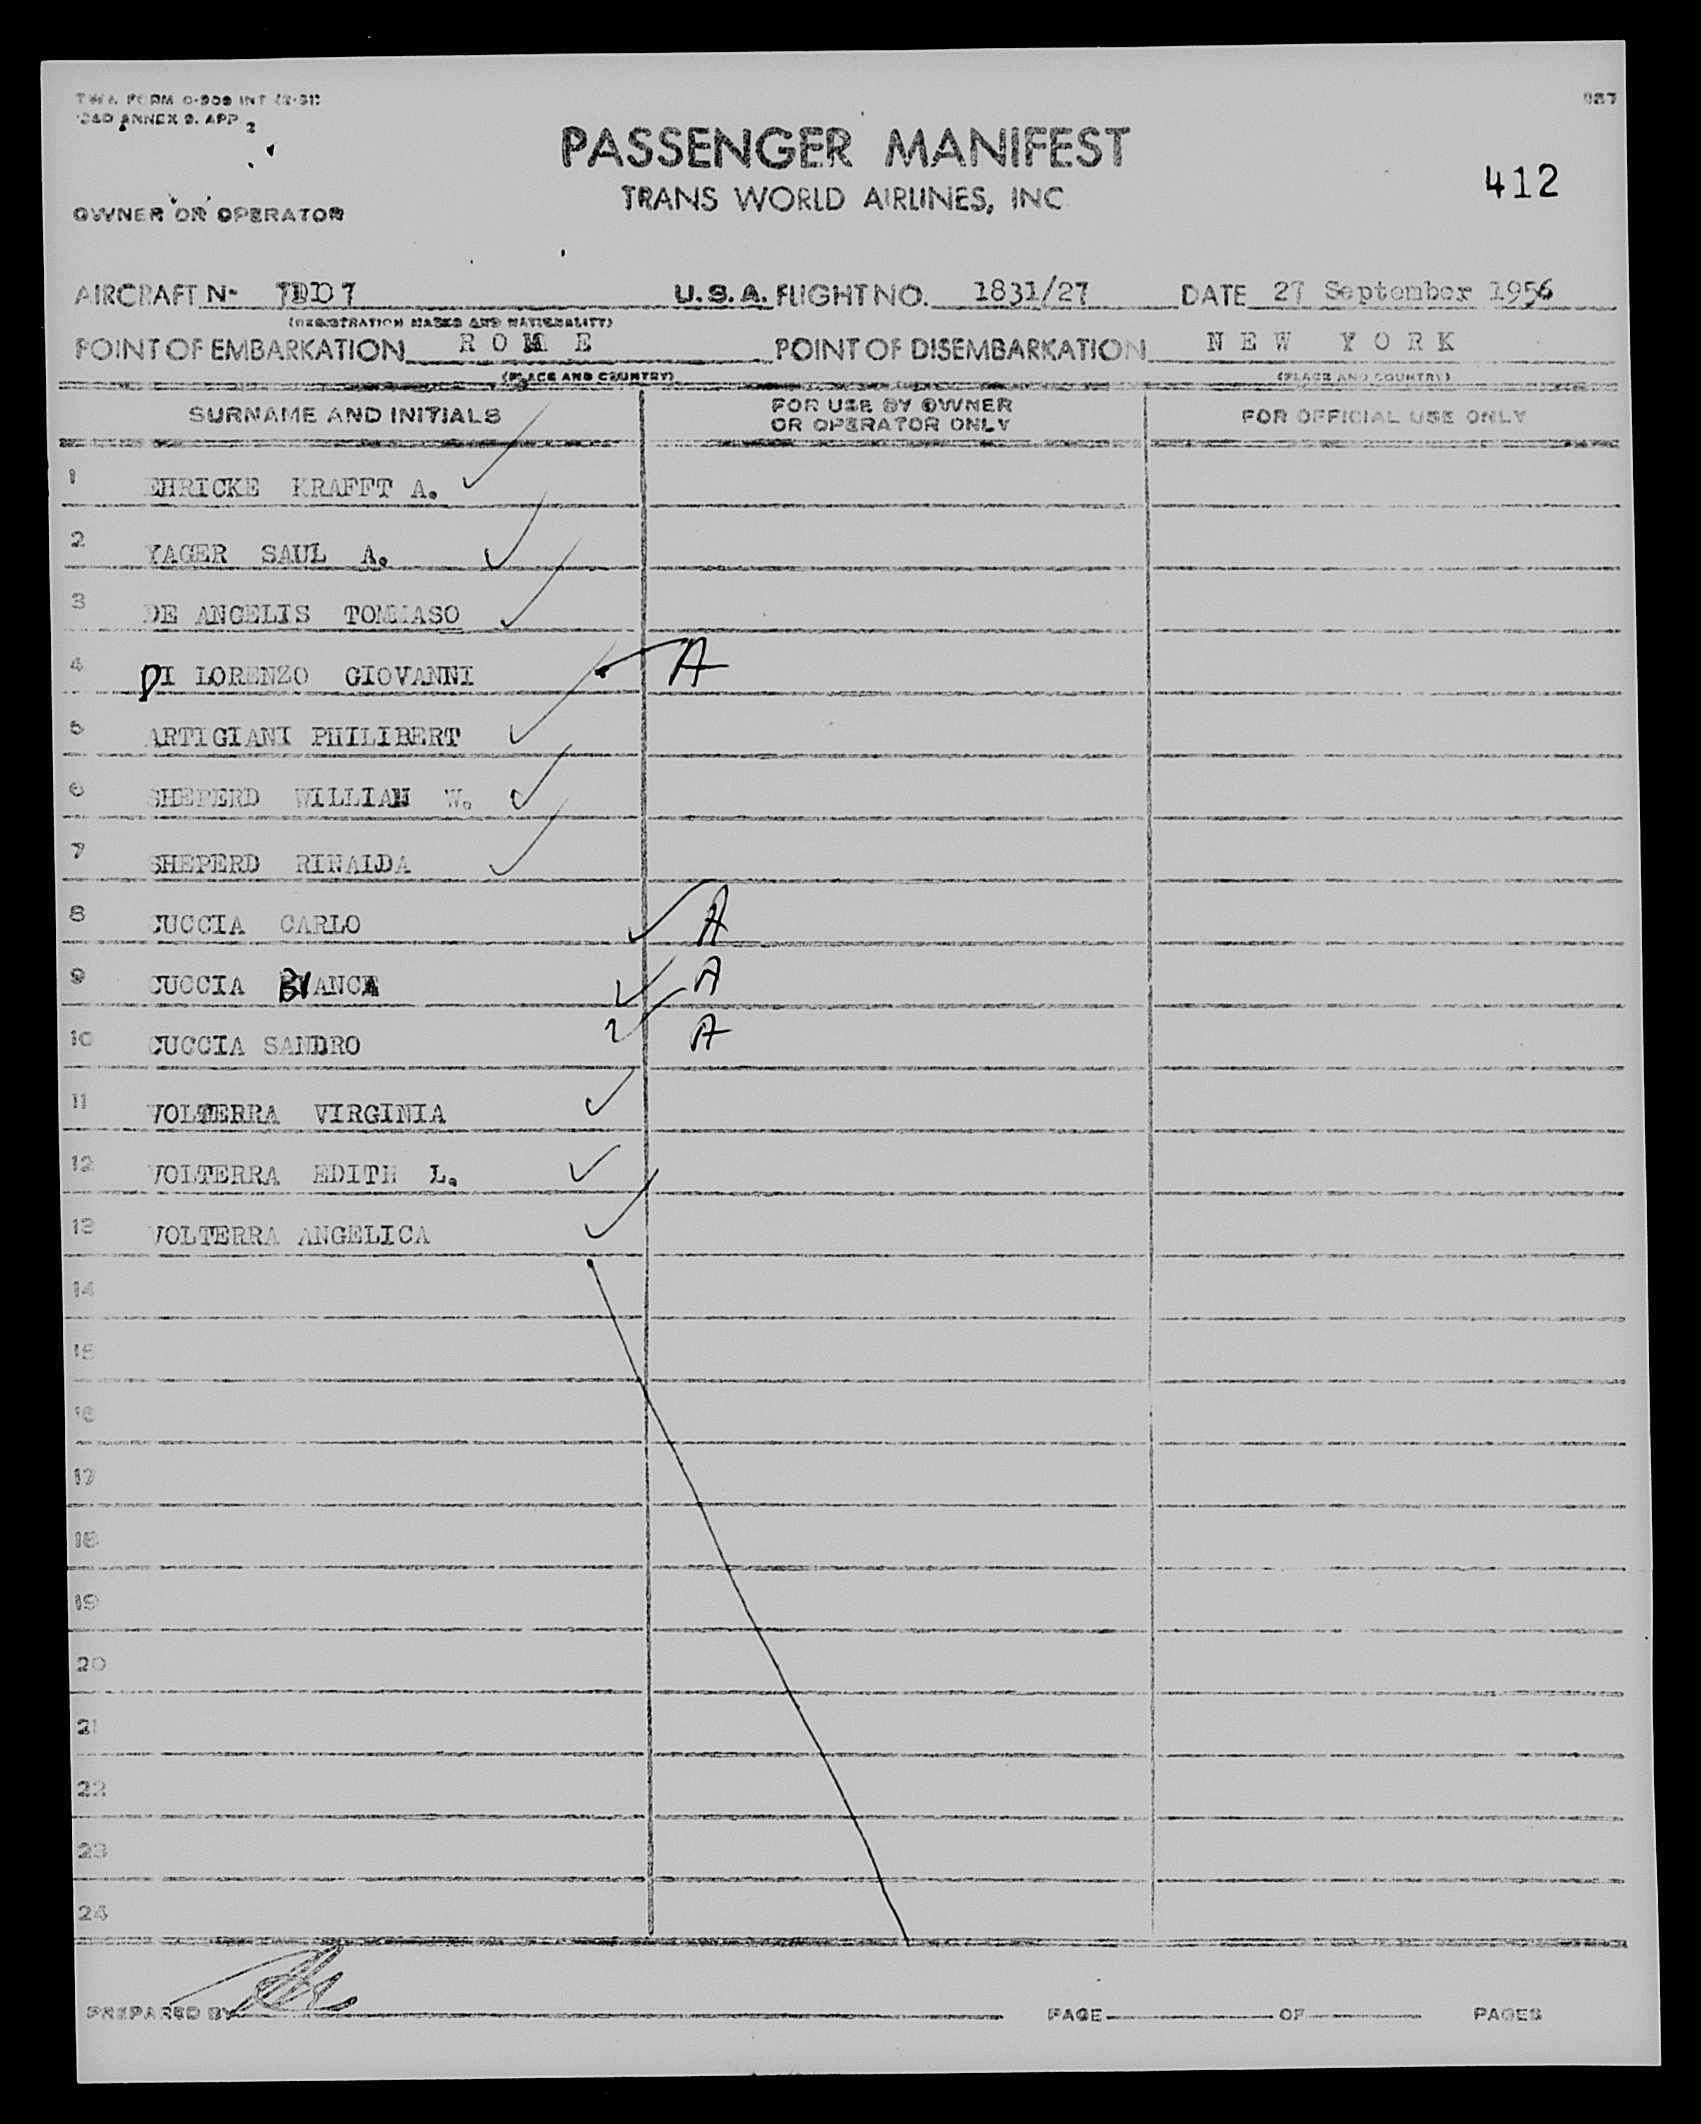 TWA FORM O-909 INT (2-51)
ANNEX 9. APP 2
957
PASSENGER MANIFEST
412
TRANS WORLD AIRLINES, INC
OWNER OR OPERATOR
AIRCRAFT N- U.S.A. FLIGHT NO. 1831/27 DATE 27 September 1956
(REGISTRATION MARKS AND NATIONALITY)
POINT OF EMBARKATION R O M E POINT OF DISEMBARKATION N E W Y O R K
(PLACE AND COUNTRY) (PLACE AND COUNTRY)
SURNAME AND INITIALS FOR USE BY OWNER OR OPERATOR ONLY FOR OFFICIAL USE ONLY
1 EHRICKE KRAFFT A.
2 YAGER SAUL A.
3 DE ANGELIS TOMMASO
4 DI LORENZO GIOVANNI A
5 ARTIGIANI PHILIBERT
6 SHEPERD WILLIAM W.
7 SHEPERD RINALDA
8 CUCCIA CARLO A
9 CUCCIA BIANCA A
10 CUCCIA SANDRO A
11 VOLTERRA VIRGINIA
12 VOLTERRA EDITH L.
13 VOLTERRA ANGELICA
14
15
16
17
18
19
20
21
22
23
24
PREPARED BY PAGE OF PAGES